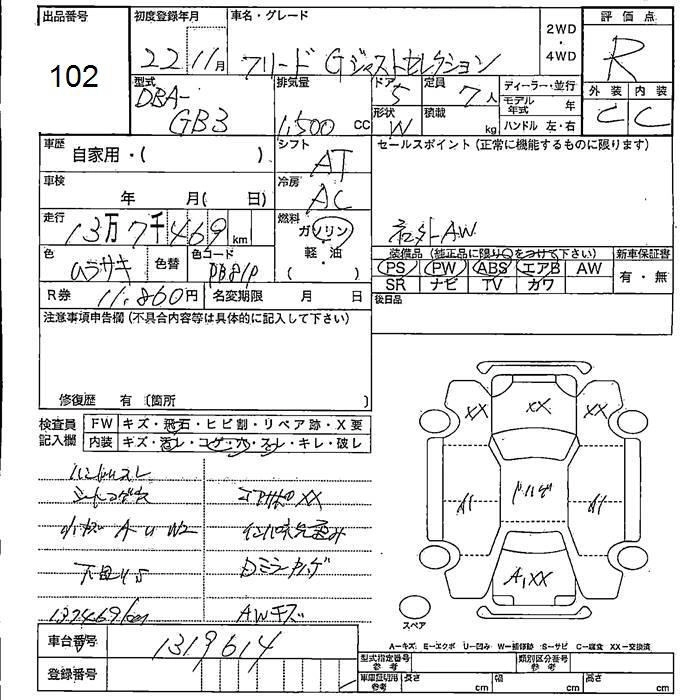 出品番号 初度登録年月 車名・グレード 2WD・4WD 評価点
102 22 11月 フリード Gジャストセレクション R
型式 排気量 ドア 定員 ディーラー・並行 外装 内装
DBA-GB3 1,500 CC 5 7人 モデル年式 年 C C
形状 積載 W kg ハンドル 左・右
車歴 自家用・( ) シフト AT セールスポイント (正常に機能するものに限ります)
車検 年 月( 日) 冷房 AC
走行 13万7千469 km 燃料 ガソリン・軽・油・( ) 社外AW
色 ムラサキ 色替 色コード PB81P
装備品 (純正品に限り○をつけて下さい) 新車保証書
PS PW ABS エアB AW 有・無
SR ナビ TV カワ
R券 11,860円 名変期限 月 日 後日品
注意事項申告欄 (不具合内容等は具体的に記入して下さい)
修復歴 有 〔箇所 〕
検査員記入欄 FW キズ・飛石・ヒビ割・リペア跡・X要
内装 キズ・汚レ・コゲ・穴・スレ・キレ・破レ
ハンドルスレ
シートコゲ穴 エアサポXX
小キズ AU W2
下廻りS Dミラーカハゲ
137469km AWキズ
XX XX XX
d1 ドハゲ d1
A1XX
スペア
A-キズ E-エクボ U-凹み W-補修跡 S-サビ C-腐食 XX-交換済
車台番号 1319614
登録番号
型式指定番号 参考 類別区分番号 参考
車庫証明用 参考 長さ cm 幅 cm 高さ cm